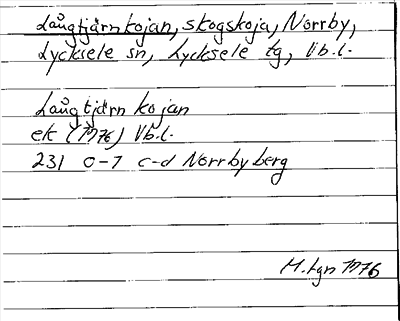 Långtjärnkojan, skogskoja, Norrby,
Lycksele sn, Lycksele tg, Vb.l.
Långtjärnkojan
ek (1976) Vb.l.
231 0-1 c-d Norrbyberg
M.tgn 1976